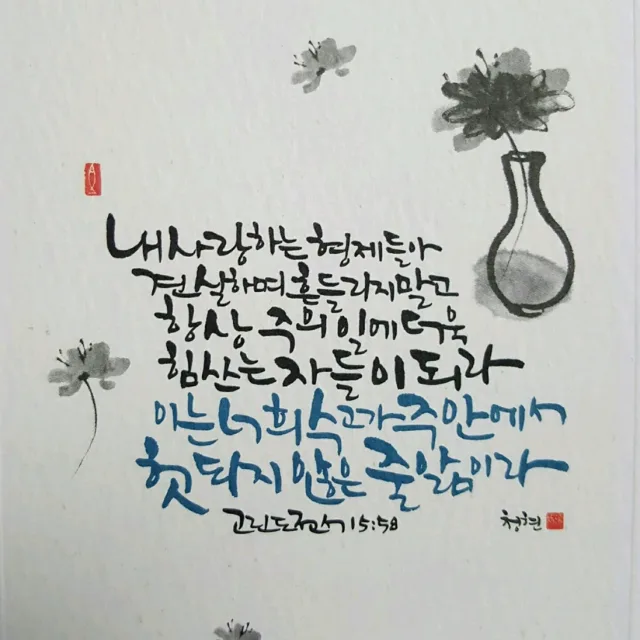 내 사랑하는 형제들아
견실하며 흔들리지 말고
항상 주의 일에 더욱
힘쓰는 자들이 되라
이는 너희 수고가 주 안에서
헛되지 않은 줄 앎이라
고린도전서 15:58
청현